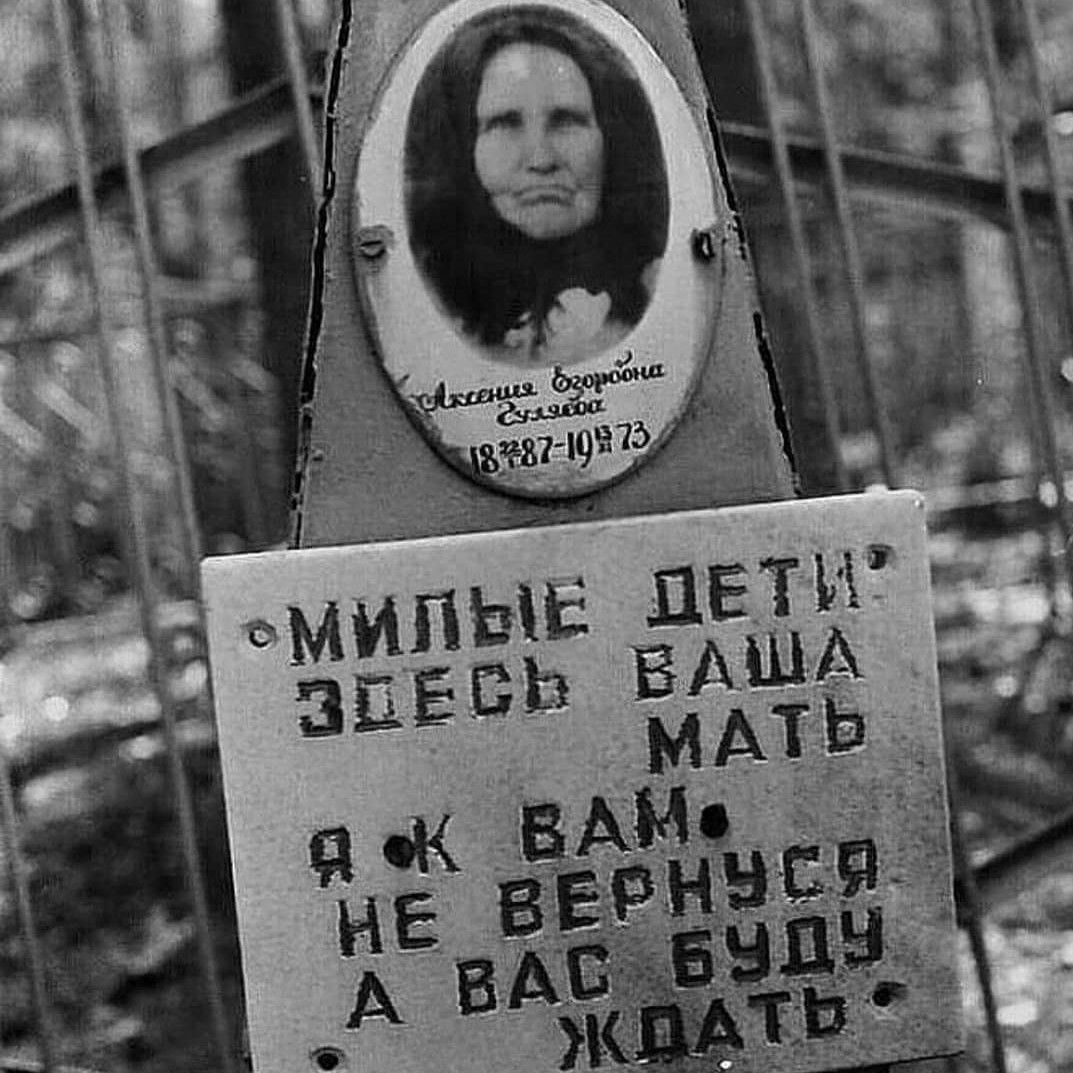 Аксения Егоровна
Гуляева
18 22/I 87-19 13/XI 73
МИЛЫЕ ДЕТИ
ЗДЕСЬ ВАША
МАТЬ
Я К ВАМ
НЕ ВЕРНУСЯ
А ВАС БУДУ
ЖДАТЬ